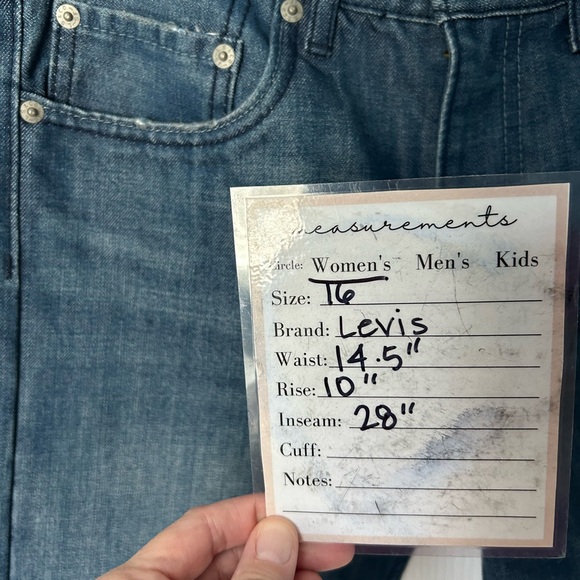 measurements
Circle: Women's Men's Kids
Size: 16
Brand: Levis
Waist: 14.5"
Rise: 10"
Inseam: 28"
Cuff:
Notes: